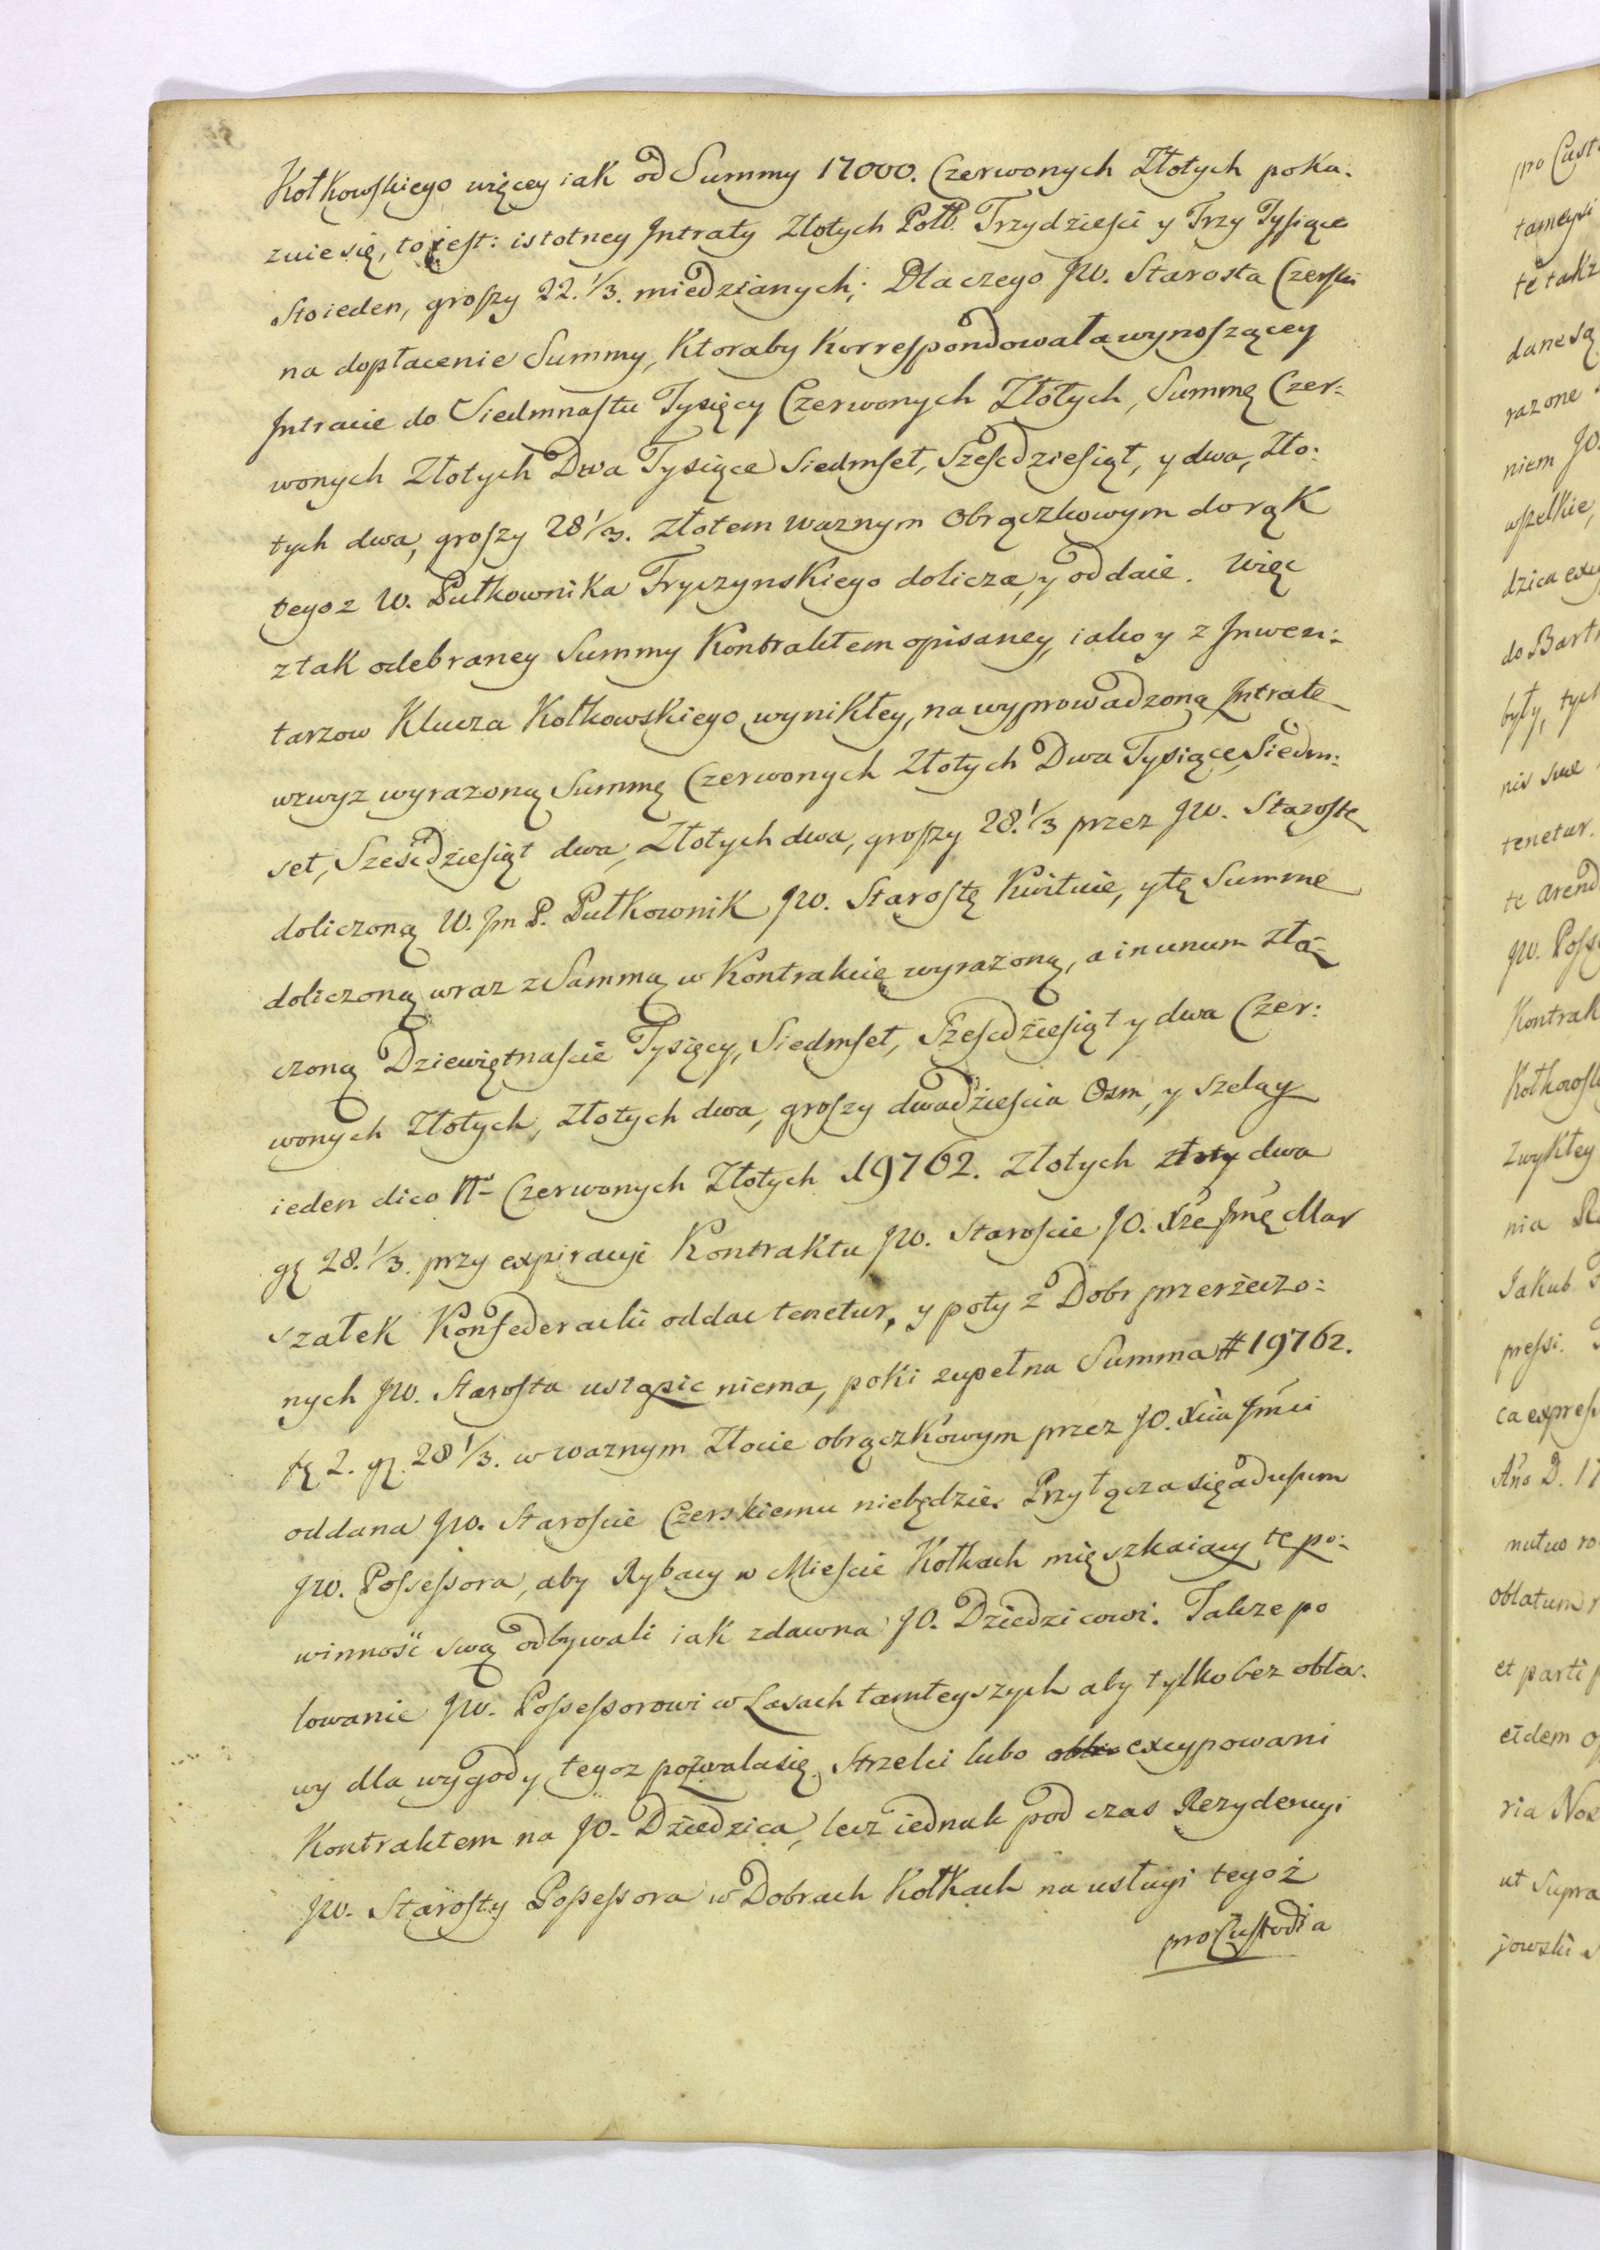 Kołkowskiego więcey iak od Summy 17000. Czerwonych Złotych poka:
zuie się, to iest: istotney Intraty Złotych Poll. Trzydzieści y Trzy Tysiące
Sto ieden, groszy 22. 1/3. miedzianych; Dlaczego JW. Starosta Czerski
na dopłacenie Summy, Ktoraby Korrespondowała wynoszącey
Intracie do Siedmnastu Tysięcy Czerwonych Złotych, Summę Czer:
wonych Złotych Dwa Tysiące Siedmset, Sześcdziesiąt, y dwa, Zło:
tych dwa, groszy 28 1/3. Złotem waznym Obrączkowym do rąk
tegoz W. Pułkownika Tryczynskiego dolicza, y oddaie. Więc
z tak odebraney Summy Kontraktem opisaney, iako y z Inwen:
tarzow Klucza Kołkowskiego wynikłey, na wyprowadzoną Intratę
wzwyz wyrazoną Summę Czerwonych Złotych Dwa Tysiące, Siedm:
set, Sześcdziesiąt dwa, Złotych dwa, groszy 28. 1/3 przez JW. Starostę
doliczoną W. Jm P. Pułkownik JW. Starostę Kwituie, y tę Summę
doliczoną wraz z Summą w Kontrakcie wyrazoną, a in unum złą-
czoną Dziewiętnaście Tysięcy, Siedmset, Sześcdziesiąt y dwa Czer:
wonych Złotych, złotych dwa, groszy dwadzieścia Osm, y szeląg
ieden dico Nro Czerwonych Złotych 19762. Złotych złoty dwa
gę 28. 1/3. przy expiracyi Kontraktu JW. Staroscie JO. Xże Jmę Mar
szałek Konfederacki oddac tenetur, y poty z Dobr przerzeczo:
nych JW. Starosta ustąpic niema, poki zupełna Summa # 19762.
fę 2. gę. 28 1/3. w waznym Złocie obrączkowym przez JO. Xcia Jmci
oddana JW. Staroscie Czerskiemu niebędzie. Przyłącza się ad usum
JW. Possessora, aby Rybacy w Mieście Kołkach mięszkaiący tę po:
winność swą odbywali iak zdawna JO. Dziedzicowi. Także po
lowanie JW. Possessorowi w Lasach tamteyszych aby tylko bez obła.
wy dla wygody tegoz pozwala się. Strzelci lubo excypowani
Kontraktem na JO. Dziedzica, lecz iednak pod czas Rezydencyi
JW. Starosty Possessora w Dobrach Kołkach na usługi tegoż
pro Custodia